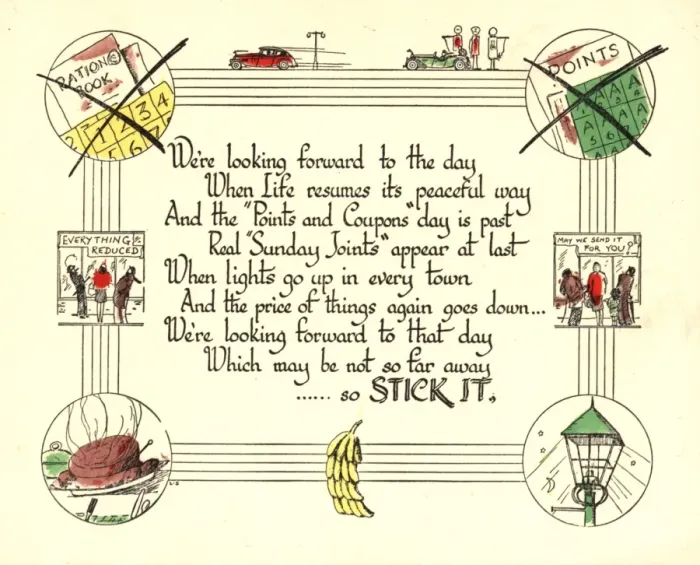 RATION(S)
BOOK
2 1 2 3 4
5 6 7
POINTS
A A A
A A A
A A A
We're looking forward to the day
When Life resumes its peaceful way
And the "Points and Coupons" day is past
Real "Sunday Joints" appear at last
When lights go up in every town
And the price of things again goes down...
We're looking forward to that day
Which may be not so far away
...... so STICK IT.
EVERYTHING
REDUCED
MAY WE SEND IT
FOR YOU?